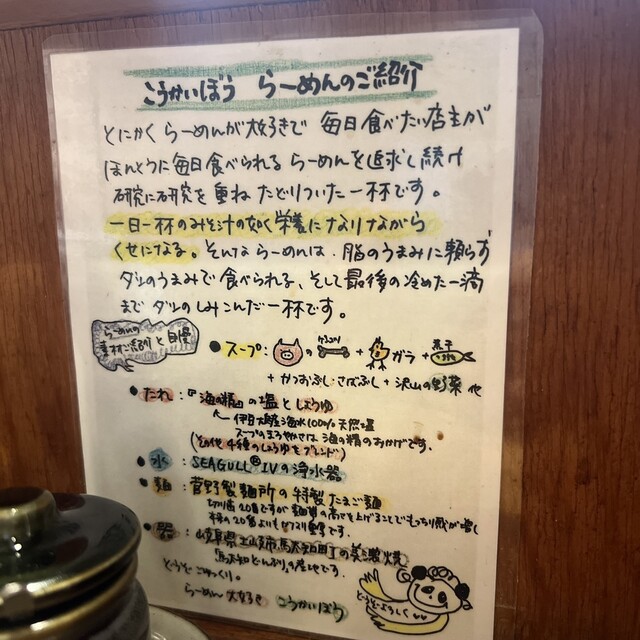 こうかいぼう らーめんのご紹介
とにかく らーめんが大好きで 毎日食べたい店主が
ほんとうに毎日食べられる らーめんを追求し続け
研究に研究を重ね たどりついた一杯です。
一日一杯のみそ汁の如く栄養になりながら
くせになる。そんな らーめんは、脂のうまみに頼らず
ダシのうまみで食べられる、そして最後の冷めた一滴
まで ダシのしみこんだ一杯です。
らーめんの
素材ご紹介と自慢
●スープ:の げんこつ + ガラ + 煮干
+ かつおぶし・さばぶし + 沢山の野菜 他
●たれ:『海の精』の塩としょうゆ
伊豆大島産海水100%天然塩
スープのまろやかさは 海の精のおかげです。
(その他 4種のしょうゆをブレンド)
●水:SEAGULL® IVの浄水器
●麺:菅野製麺所の特製たまご麺
切刃は20番ですが 麺質の高さを上げることでもっちり感が増し
本来の20番よりも
●器:岐阜県土岐市馬太知町の美濃焼
どんぶり」の産地です。
どうぞ ごゆっくり。
らーめん 大好き こうかいぼう
どうぞよろしく